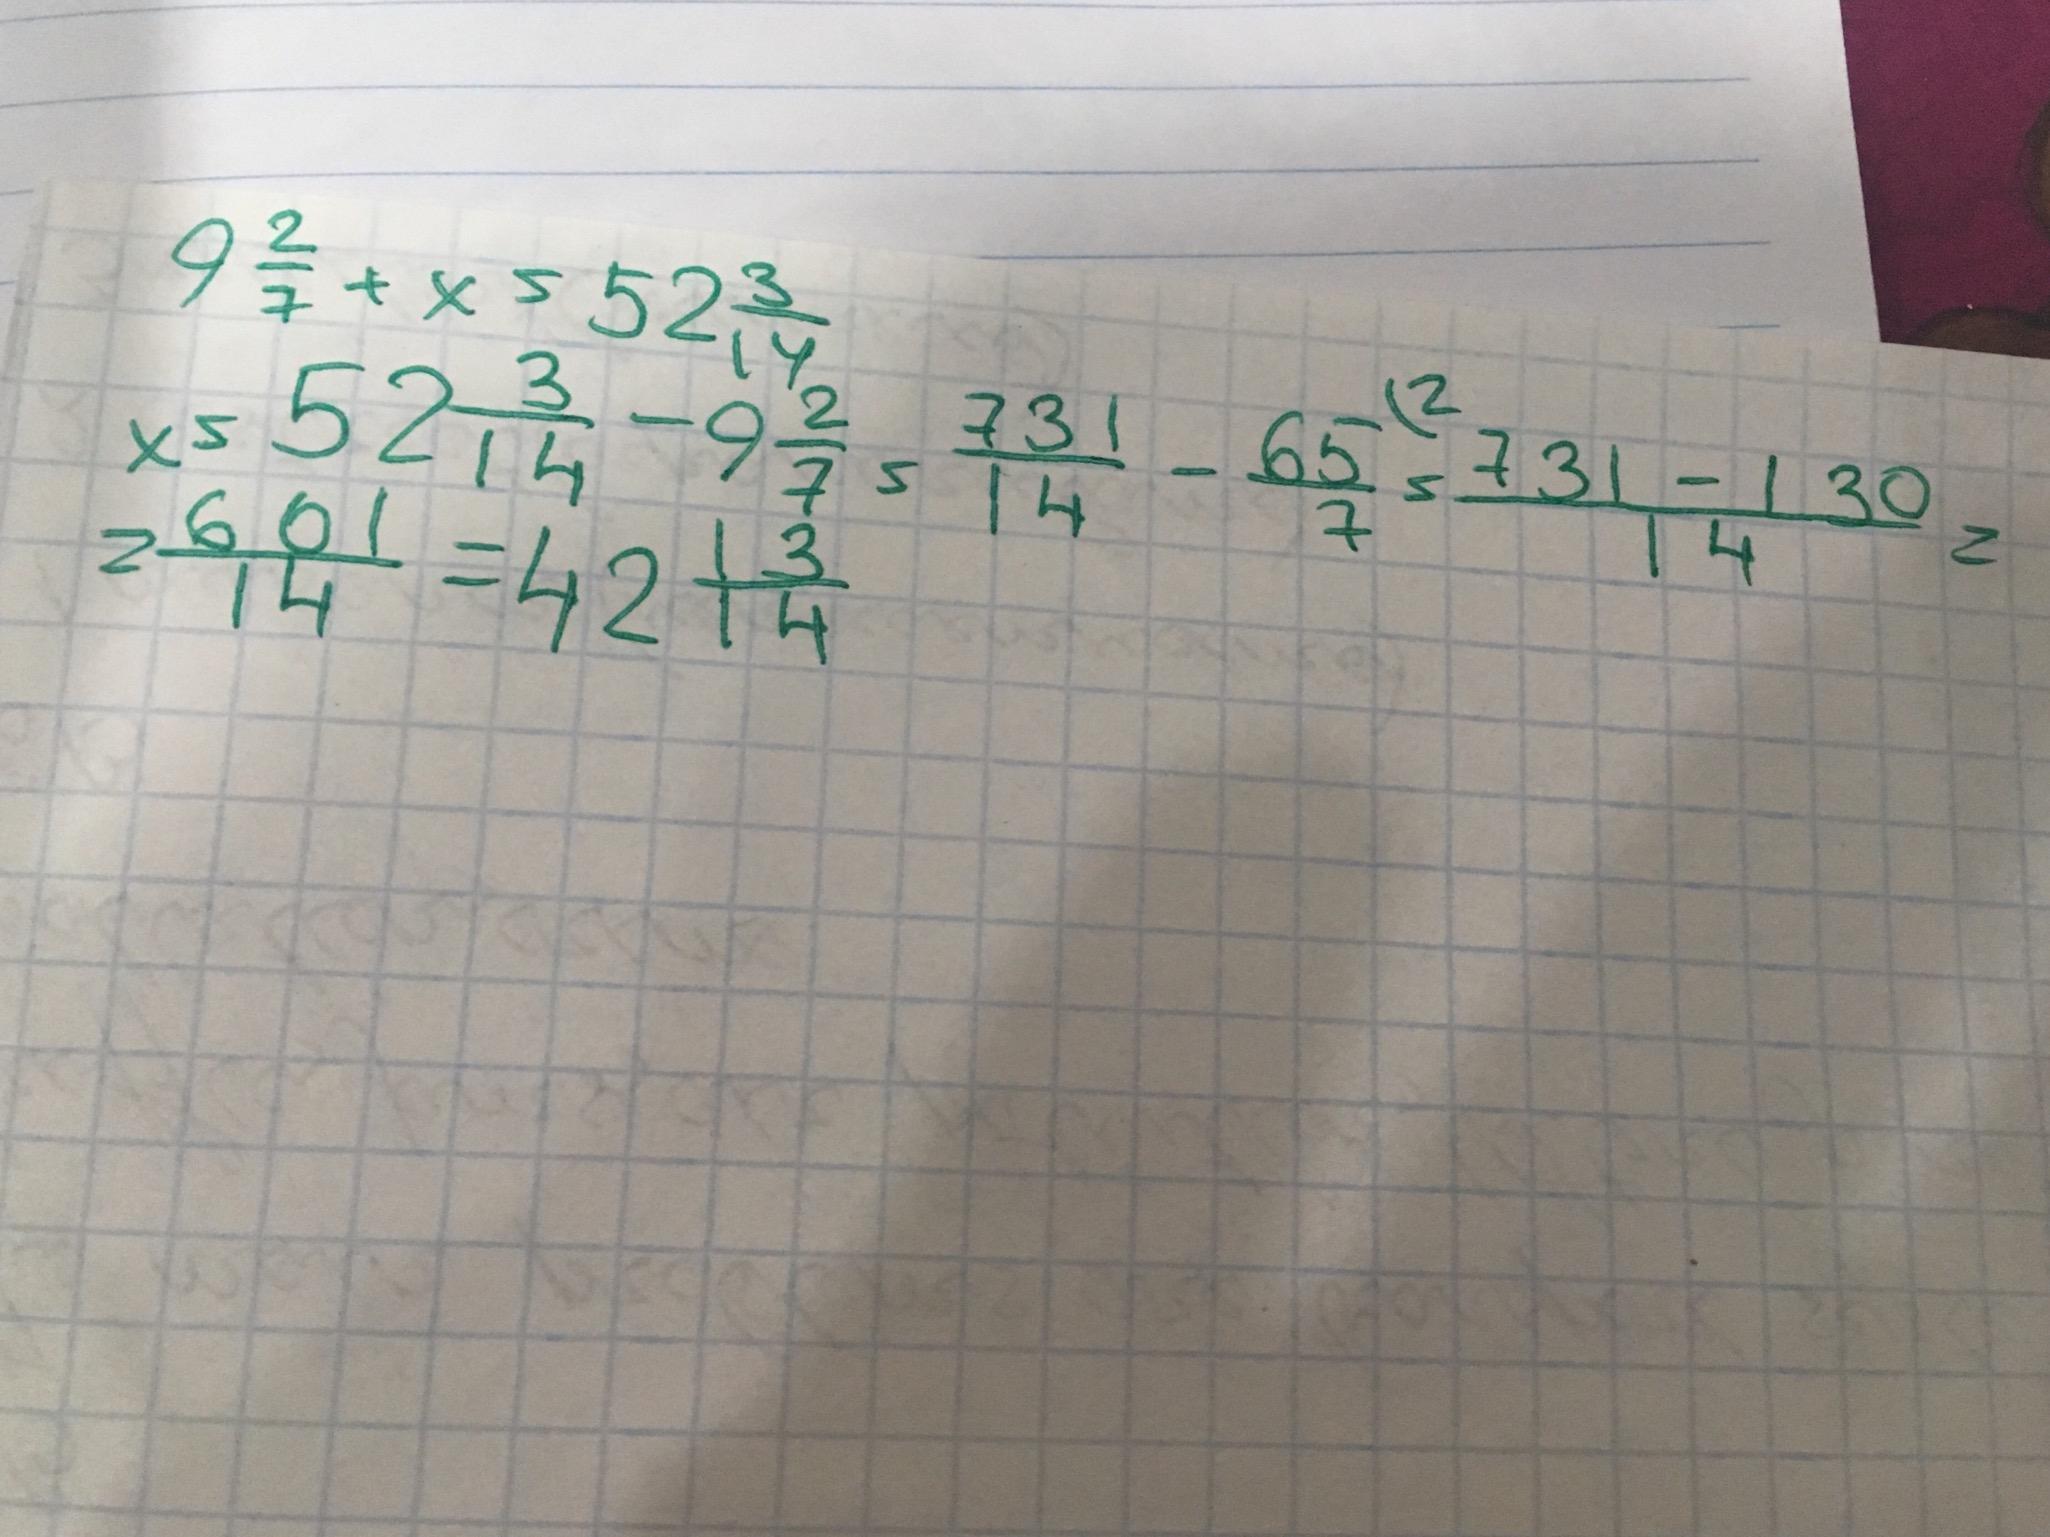 9 2/7 + x = 52 3/14
x = 52 3/14 - 9 2/7 = 731/14 - 65/7 (2 = 731 - 130/14 =
= 601/14 = 42 13/14